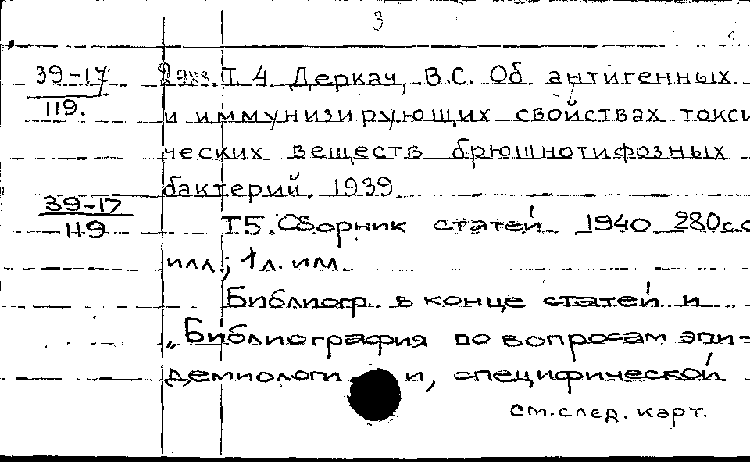 3
39-17 2 экз. Т. 4 Деркач, В.С. Об антигенных
119. и иммунизирующих свойствах токси
ческих веществ брюшнотифозных
бактерий. 1939
39-17
119 Т5. Сборник статей 1940 280с.с
илл.; 1 л. илл.
Библиогр. в конце статей и
„Библиография по вопросам эпи-
демиологи и, специфической
см. след. карт.